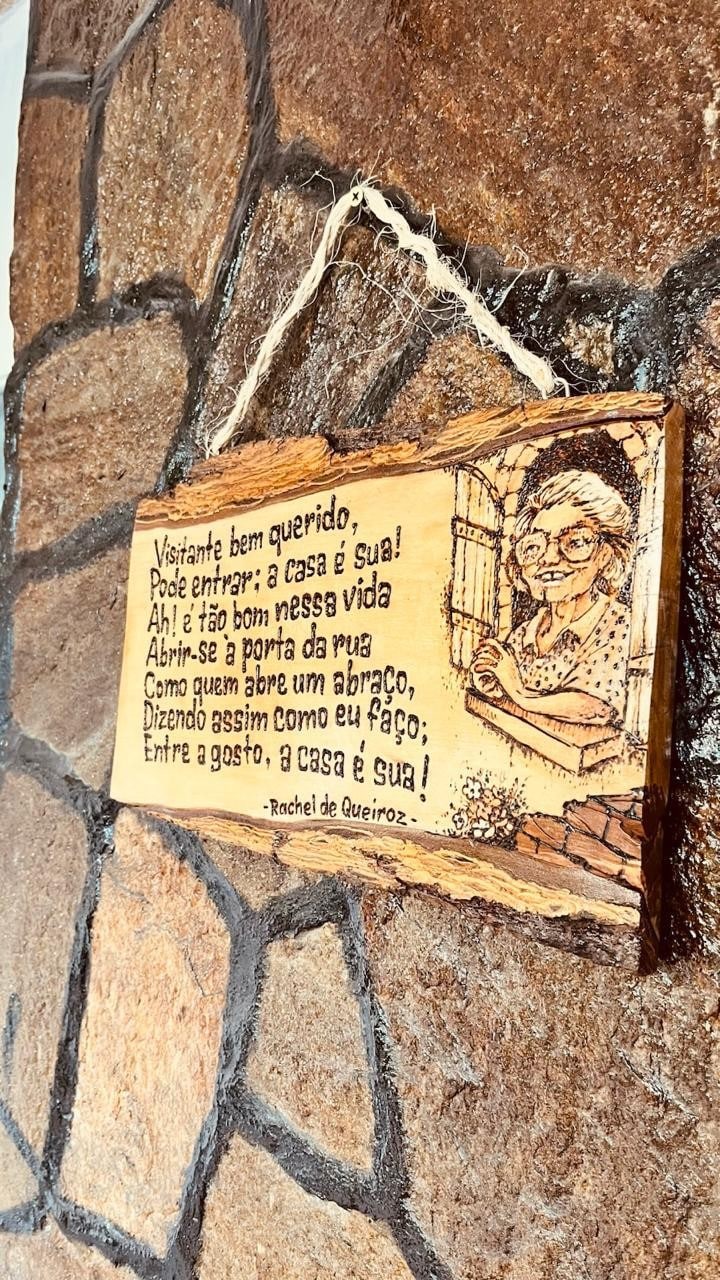 Visitante bem querido,
Pode entrar; a casa é sua!
Ah! é tão bom nessa vida
Abrir-se à porta da rua
Como quem abre um abraço,
Dizendo assim como eu faço;
Entre a gosto, a casa é sua!
-Rachel de Queiroz-